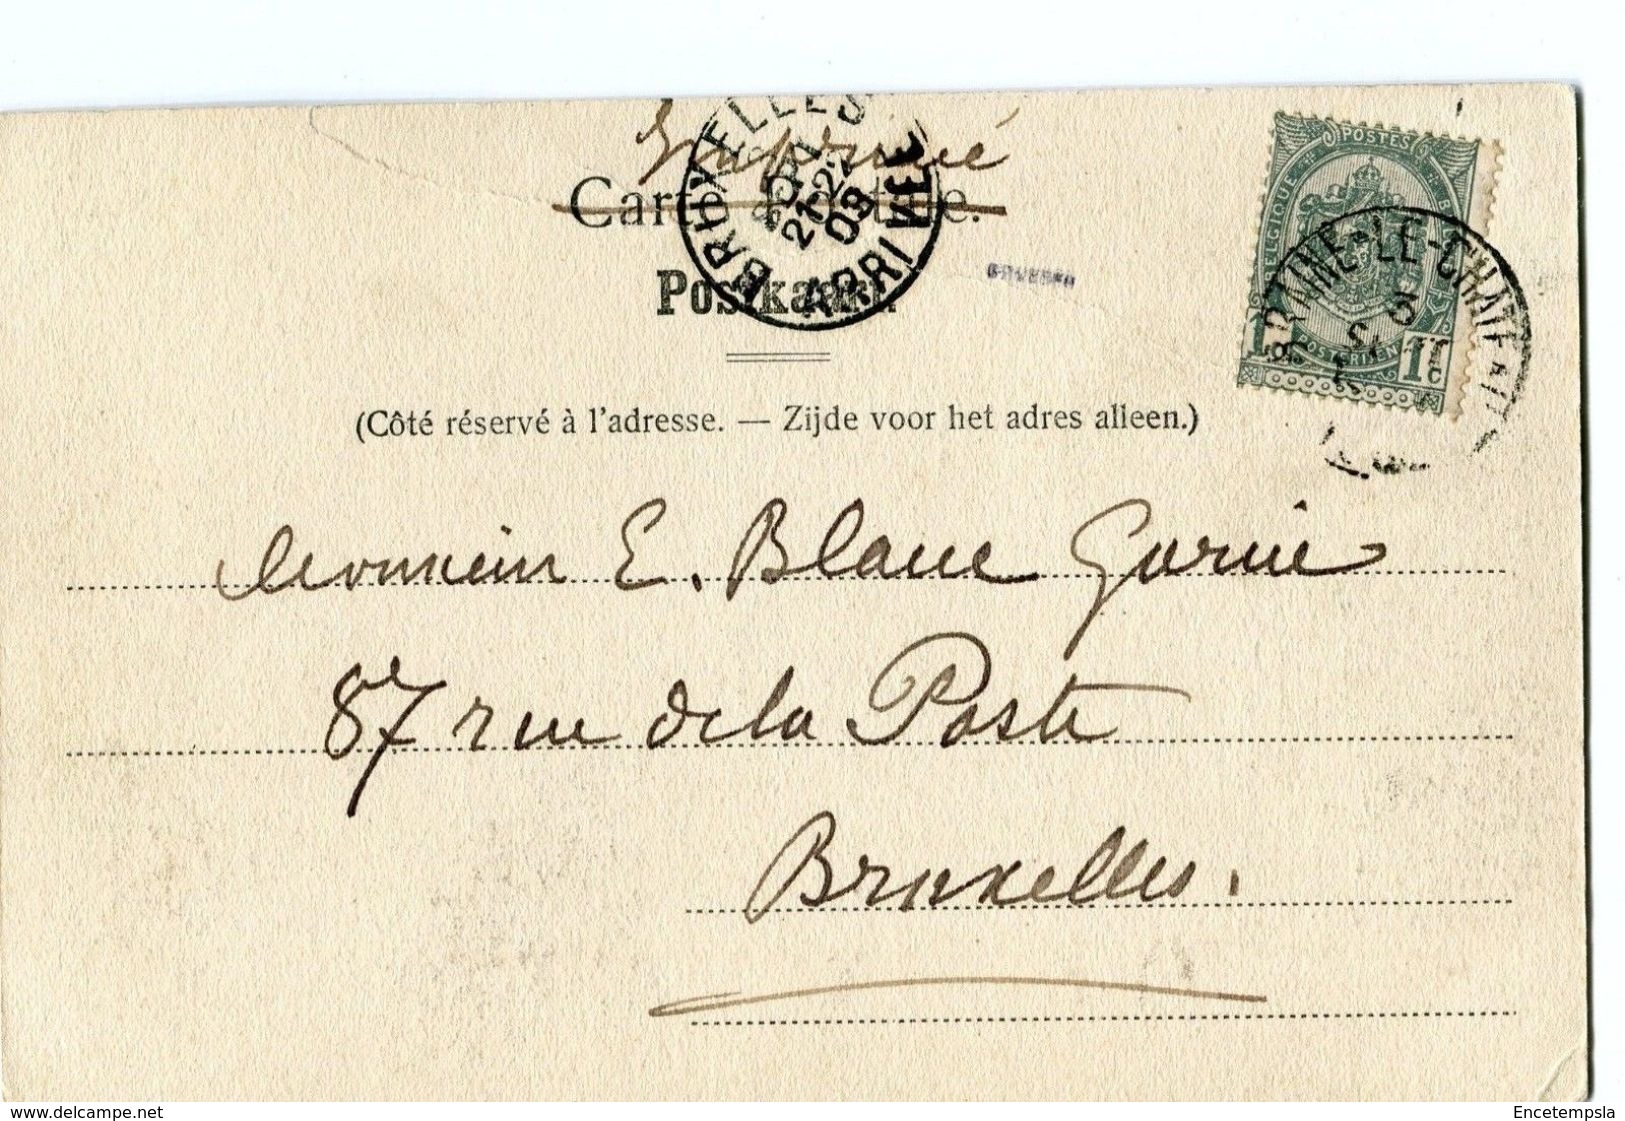 Imprimé
Carte Postale.
Postkaart.
BRUXELLES
21-22
03
ARRIVÉE
POSTES
BELGIQUE
POSTERIJEN
1c
BRAINE-LE-CHATEAU
(Côté réservé à l'adresse. — Zijde voor het adres alleen.)
Monsieur E. Blanc Garin
87 rue de la Poste
Bruxelles.
www.delcampe.net
Encetempsla